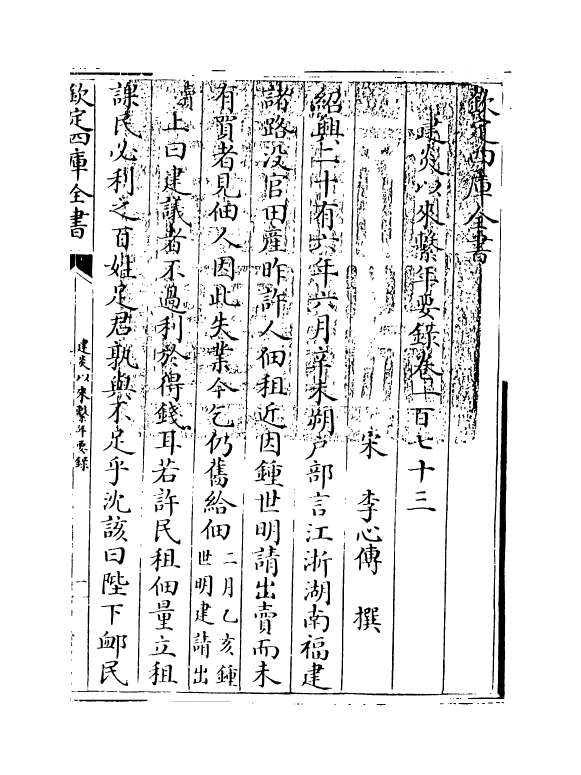 欽定四庫全書
建炎以來繫年要錄卷一百七十三
宋 李心傳 撰
紹興二十有六年六月辛未朔戶部言江浙湖南福建
諸路沒官田產昨許人佃租近因鍾世明請出賣而未
有買者見佃人因此失業今乞仍舊給佃二月乙亥鍾
世明建請出
賣
上曰建議者不過利於得錢耳若許民租佃量立租
課民必利之百姓足君孰與不足乎沈該曰陛下䘏民
欽定四庫全書
建炎以來繫年要錄
一